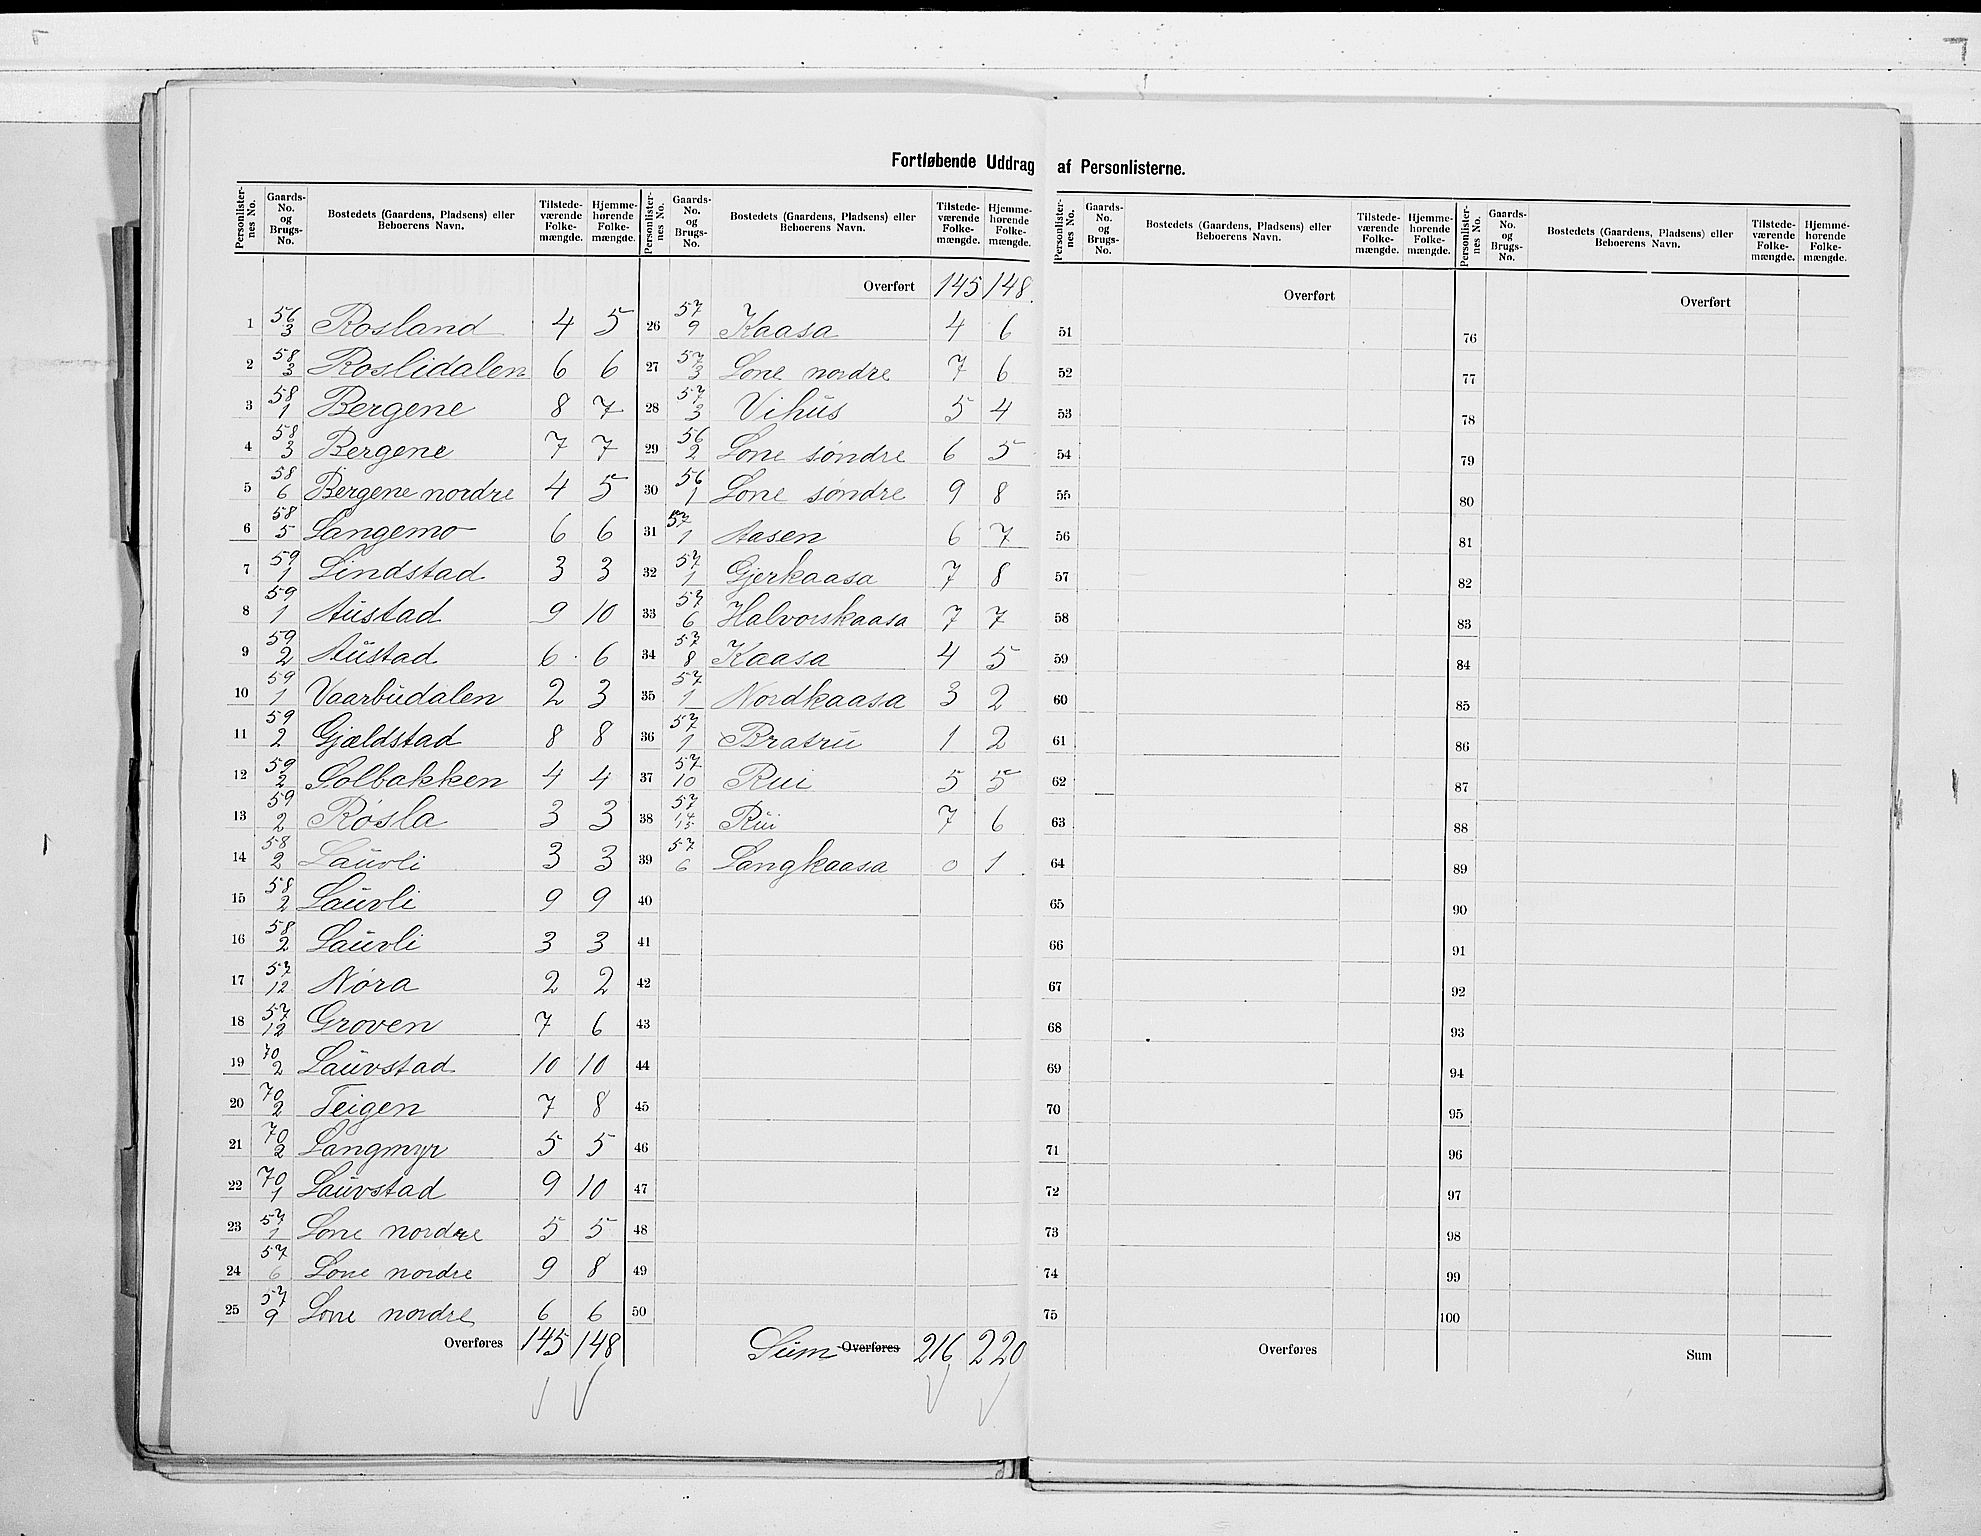 Fortløbende Uddrag af Personlisterne.
Personlister-nes No. | Gaards-No. og Brugs-No. | Bostedets (Gaardens, Pladsens) eller Beboerens Navn. | Tilstede-værende Folke-mængde. | Hjemme-hørende Folke-mængde.
1 56/3 Rosland 4 5
2 58/3 Roslidalen 6 6
3 58/1 Bergene 8 7
4 58/3 Bergene 7 7
5 58/6 Bergene nordre 4 5
6 58/5 Langemo 6 6
7 59/1 Lindstad 3 3
8 59/1 Austad 9 10
9 59/2 Austad 6 6
10 59/1 Vaarbudalen 2 3
11 59/2 Gjældstad 8 8
12 59/2 Solbakken 4 4
13 59/2 Røsla 3 3
14 58/2 Lauvli 3 3
15 58/2 Lauvli 9 9
16 58/2 Lauvli 3 3
17 57/12 Nøra 2 2
18 57/12 Groven 7 6
19 70/2 Lauvstad 10 10
20 70/2 Teigen 7 8
21 70/2 Langmyr 5 5
22 70/1 Lauvstad 9 10
23 57/1 Lone nordre 5 5
24 57/6 Lone nordre 9 8
25 57/9 Lone nordre 6 6
Overføres 145 148
Personlister-nes No. | Gaards-No. og Brugs-No. | Bostedets (Gaardens, Pladsens) eller Beboerens Navn. | Tilstede-værende Folke-mængde. | Hjemme-hørende Folke-mængde.
Overført 145 148
26 57/9 Kaasa 4 6
27 57/3 Lone nordre 7 6
28 57/3 Vihus 5 4
29 56/2 Lone søndre 6 5
30 56/1 Lone søndre 9 8
31 57/1 Aasen 6 7
32 57/1 Gjerkaasa 7 8
33 57/6 Halvorskaasa 7 7
34 57/8 Kaasa 4 5
35 57/1 Nordkaasa 3 2
36 57/1 Bratru 1 2
37 57/10 Rui 5 5
38 57/14 15 Rui 7 6
39 57/6 Langkaasa 0 1
40
41
42
43
44
45
46
47
48
49
50
Sum Overføres 216 220
Personlister-nes No. | Gaards-No. og Brugs-No. | Bostedets (Gaardens, Pladsens) eller Beboerens Navn. | Tilstede-værende Folke-mængde. | Hjemme-hørende Folke-mængde.
Overført
51
52
53
54
55
56
57
58
59
60
61
62
63
64
65
66
67
68
69
70
71
72
73
74
75
Overføres
Personlister-nes No. | Gaards-No. og Brugs-No. | Bostedets (Gaardens, Pladsens) eller Beboerens Navn. | Tilstede-værende Folke-mængde. | Hjemme-hørende Folke-mængde.
Overført
76
77
78
79
80
81
82
83
84
85
86
87
88
89
90
91
92
93
94
95
96
97
98
99
100
Sum